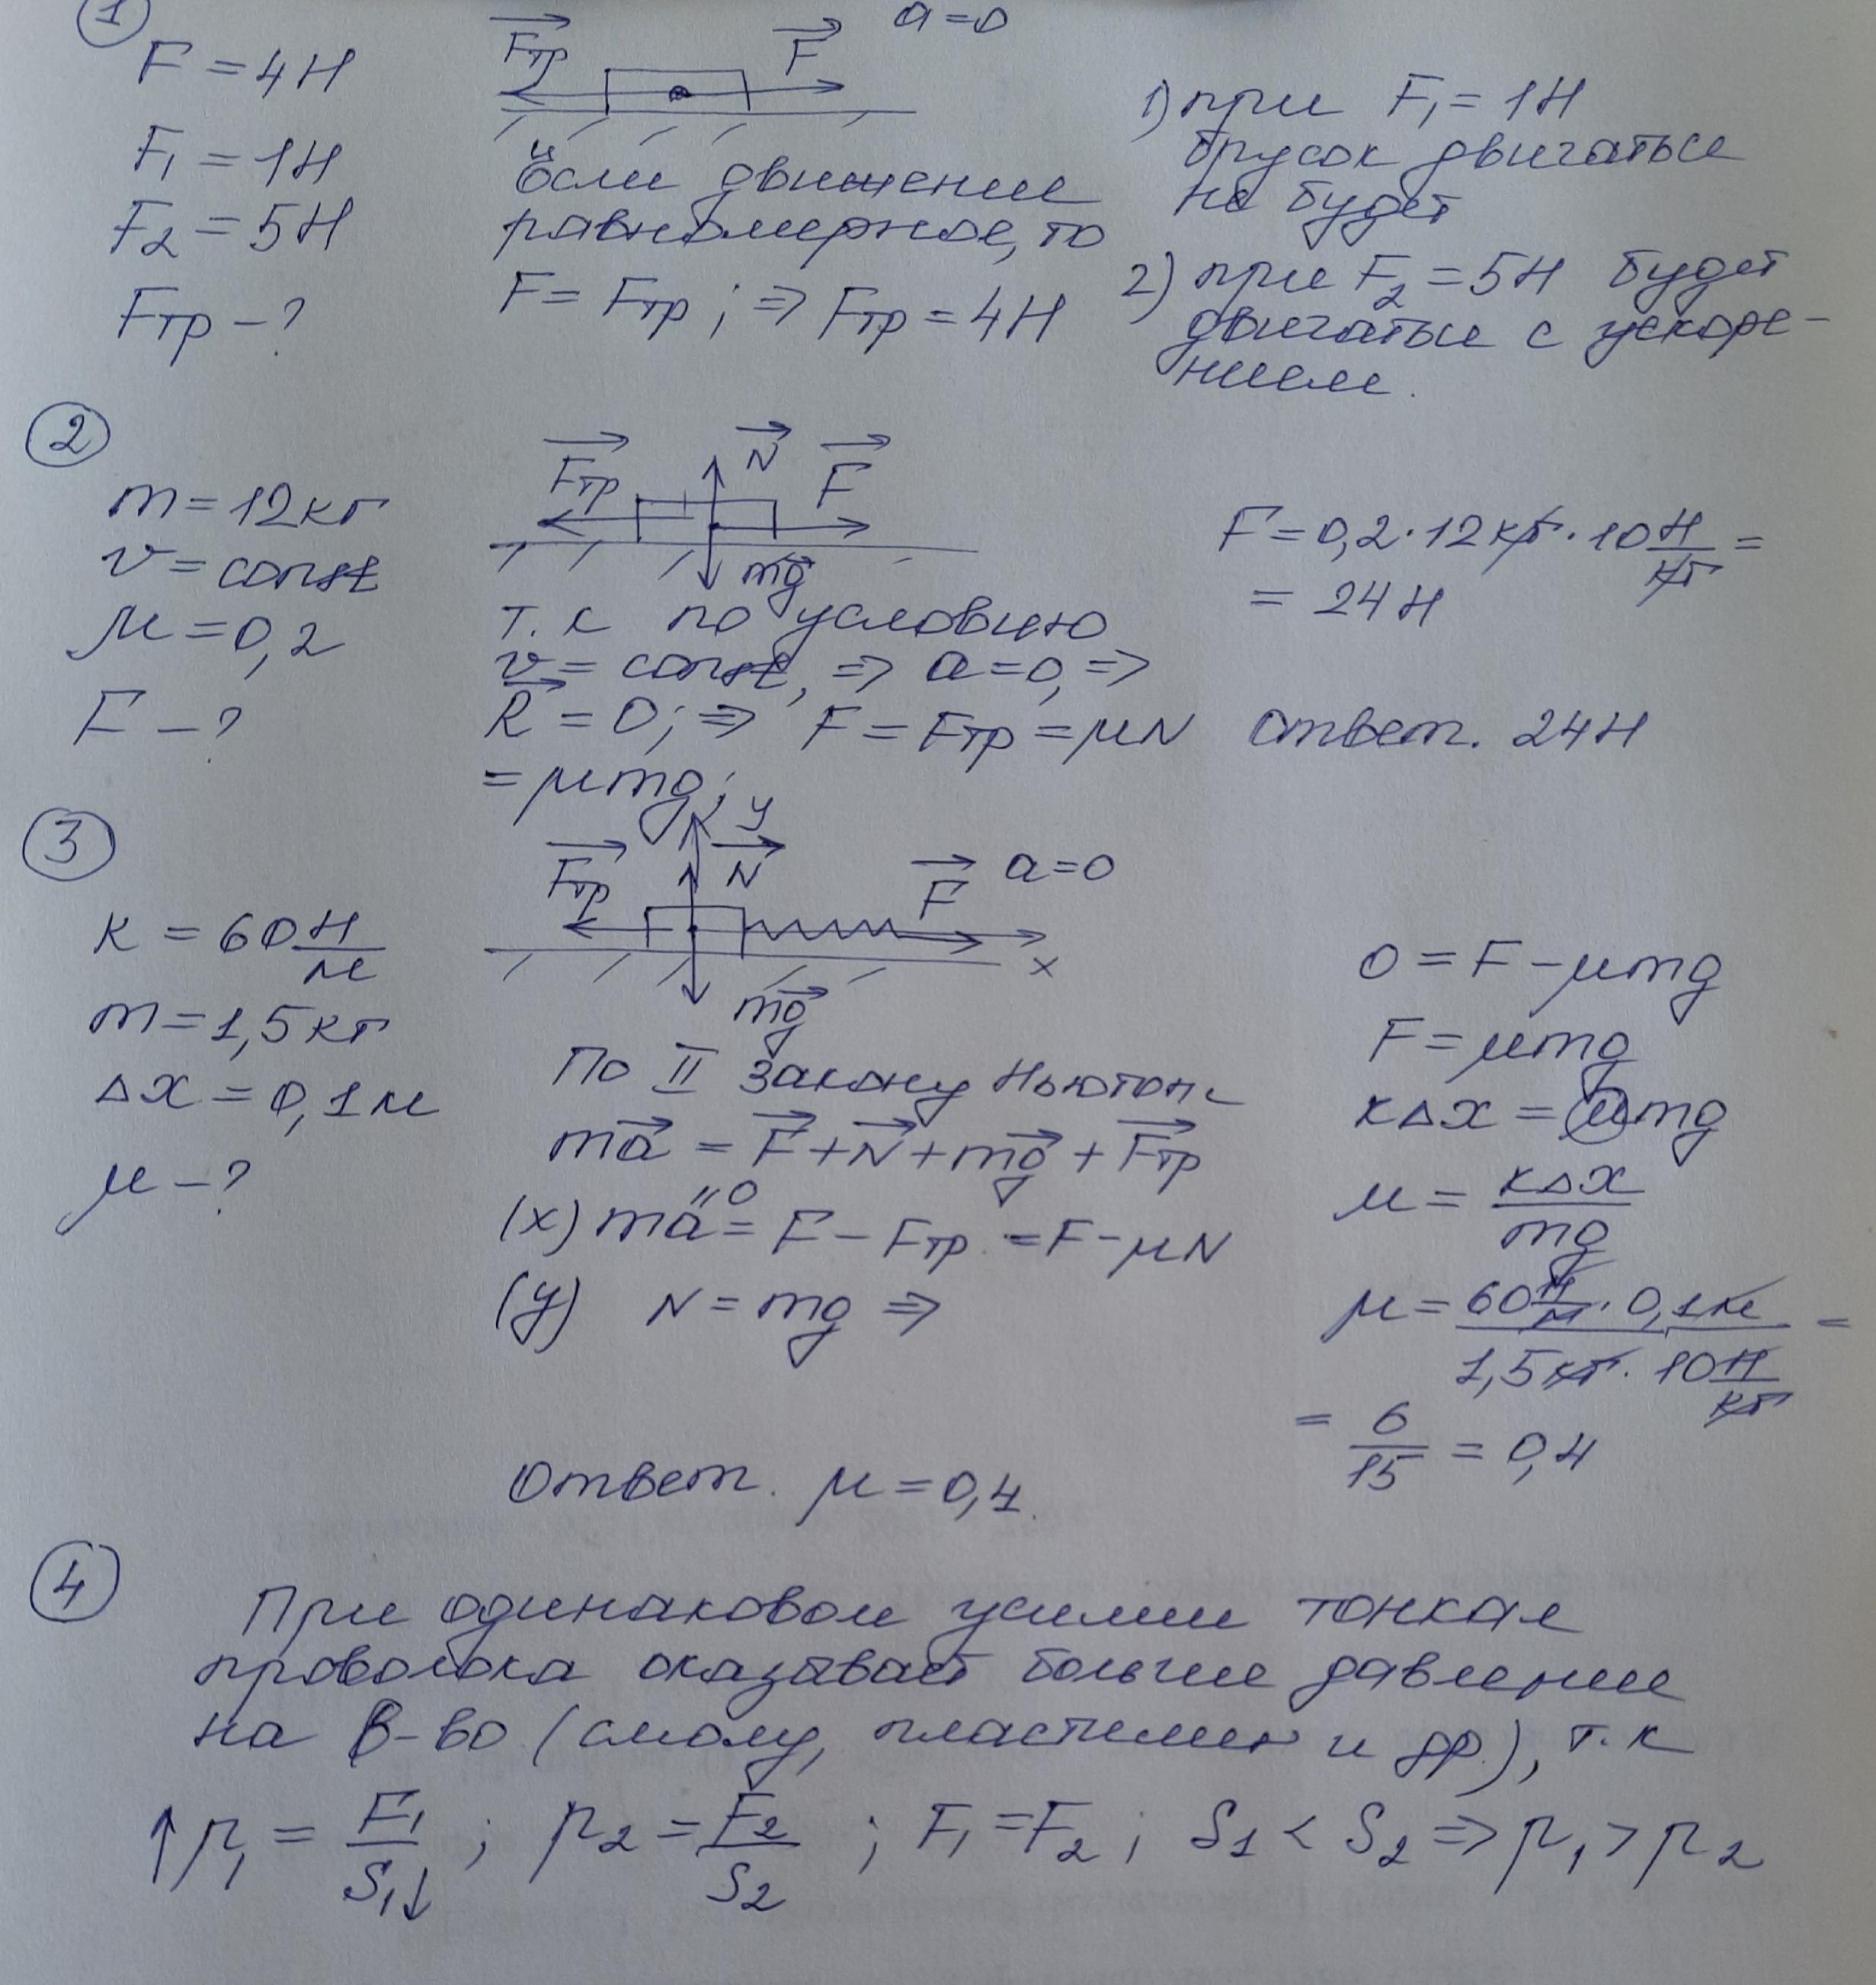 1
F = 4Н
F₁ = 1Н
F₂ = 5Н
Fтр – ?
Fтр F a = 0
Если движение
равномерное, то
F = Fтр ; ⇒ Fтр = 4Н
1) при F₁ = 1Н
брусок двигаться
не будет
2) при F₂ = 5Н будет
двигаться с ускоре–
нием.
2
m = 12кг
v = const
μ = 0,2
F – ?
Fтр N F
mg
т.к по условию
v = const, ⇒ a = 0, ⇒
R = 0; ⇒ F = Fтр = μN
= μmg;
F = 0,2 · 12кг · 10 Н/кг =
= 24Н
Ответ. 24Н
3
k = 60 Н/м
m = 1,5кг
Δx = 0,1м
μ – ?
y
Fтр N F a = 0
x
mg
По II закону Ньютона
ma = F + N + mg + Fтр
(x) ma = F – Fтр = F – μN
" 0
(y) N = mg ⇒
0 = F – μmg
F = μmg
kΔx = μmg
μ = kΔx/mg
μ = 60 Н/м · 0,1м / 1,5кг · 10 Н/кг =
= 6/15 = 0,4
Ответ. μ = 0,4.
4
При одинаковом усилии тонкая
проволока оказывает больше давление
на в-во (смолу, пластилин и др.), т.к
↑p₁ = F₁/S₁↓ ; p₂ = F₂/S₂ ; F₁ = F₂ ; S₁ < S₂ ⇒ p₁ > p₂